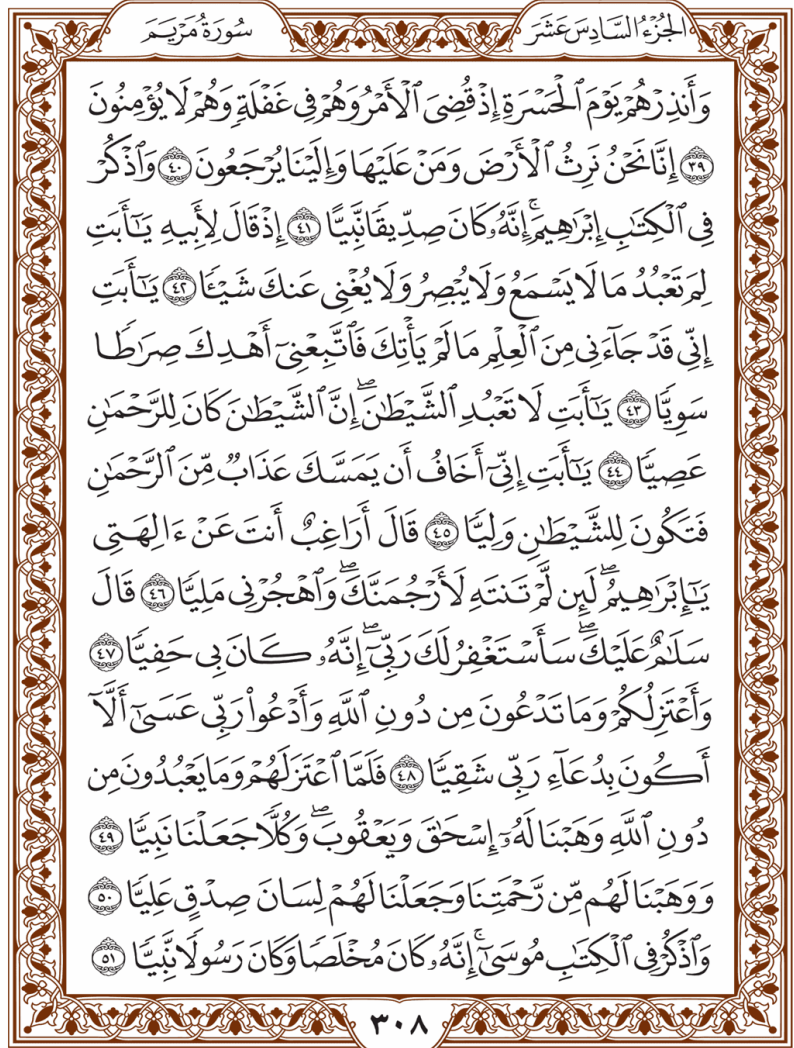 الجُزْءُ السَّادِسَ عَشَرَ
سُورَةُ مَرْيَمَ
وَأَنذِرْهُمْ يَوْمَ ٱلْحَسْرَةِ إِذْ قُضِىَ ٱلْأَمْرُ وَهُمْ فِى غَفْلَةٍ وَهُمْ لَا يُؤْمِنُونَ
٣٩ إِنَّا نَحْنُ نَرِثُ ٱلْأَرْضَ وَمَنْ عَلَيْهَا وَإِلَيْنَا يُرْجَعُونَ ٤٠ وَٱذْكُرْ
فِى ٱلْكِتَٰبِ إِبْرَٰهِيمَۚ إِنَّهُۥ كَانَ صِدِّيقًا نَّبِيًّا ٤١ إِذْ قَالَ لِأَبِيهِ يَٰٓأَبَتِ
لِمَ تَعْبُدُ مَا لَا يَسْمَعُ وَلَا يُبْصِرُ وَلَا يُغْنِى عَنكَ شَيْـًٔا ٤٢ يَٰٓأَبَتِ
إِنِّى قَدْ جَآءَنِى مِنَ ٱلْعِلْمِ مَا لَمْ يَأْتِكَ فَٱتَّبِعْنِىٓ أَهْدِكَ صِرَٰطًا
سَوِيًّا ٤٣ يَٰٓأَبَتِ لَا تَعْبُدِ ٱلشَّيْطَٰنَۖ إِنَّ ٱلشَّيْطَٰنَ كَانَ لِلرَّحْمَٰنِ
عَصِيًّا ٤٤ يَٰٓأَبَتِ إِنِّىٓ أَخَافُ أَن يَمَسَّكَ عَذَابٌ مِّنَ ٱلرَّحْمَٰنِ
فَتَكُونَ لِلشَّيْطَٰنِ وَلِيًّا ٤٥ قَالَ أَرَاغِبٌ أَنتَ عَنْ ءَالِهَتِى
يَٰٓإِبْرَٰهِيمُۖ لَئِن لَّمْ تَنتَهِ لَأَرْجُمَنَّكَۖ وَٱهْجُرْنِى مَلِيًّا ٤٦ قَالَ
سَلَٰمٌ عَلَيْكَۖ سَأَسْتَغْفِرُ لَكَ رَبِّىٓۖ إِنَّهُۥ كَانَ بِى حَفِيًّا ٤٧
وَأَعْتَزِلُكُمْ وَمَا تَدْعُونَ مِن دُونِ ٱللَّهِ وَأَدْعُوا۟ رَبِّى عَسَىٰٓ أَلَّآ
أَكُونَ بِدُعَآءِ رَبِّى شَقِيًّا ٤٨ فَلَمَّا ٱعْتَزَلَهُمْ وَمَا يَعْبُدُونَ مِن
دُونِ ٱللَّهِ وَهَبْنَا لَهُۥٓ إِسْحَٰقَ وَيَعْقُوبَۖ وَكُلًّا جَعَلْنَا نَبِيًّا ٤٩
وَوَهَبْنَا لَهُم مِّن رَّحْمَتِنَا وَجَعَلْنَا لَهُمْ لِسَانَ صِدْقٍ عَلِيًّا ٥٠
وَٱذْكُرْ فِى ٱلْكِتَٰبِ مُوسَىٰٓۚ إِنَّهُۥ كَانَ مُخْلَصًا وَكَانَ رَسُولًا نَّبِيًّا ٥١
٣٠٨